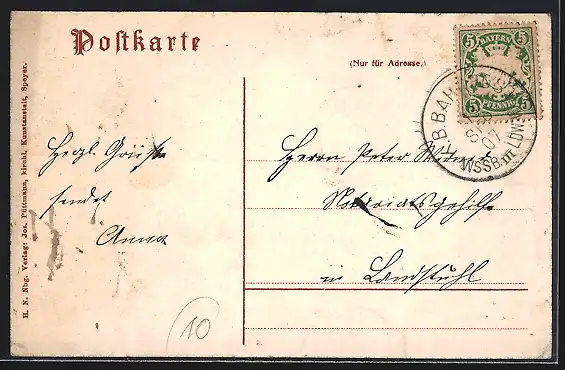 Postkarte
(Nur für Adresse.)
5 BAYERN 5
5 PFENNIG 5
BAH
SEP
07
WSSB.
H. N. Nbg. Verlag: Jos. Püttmann, kirchl. Kunstanstalt, Speyer.
Herzl. Grüße
sendet
Anna
Herrn Peter
Notariatsgehilfe
in Landstuhl
10